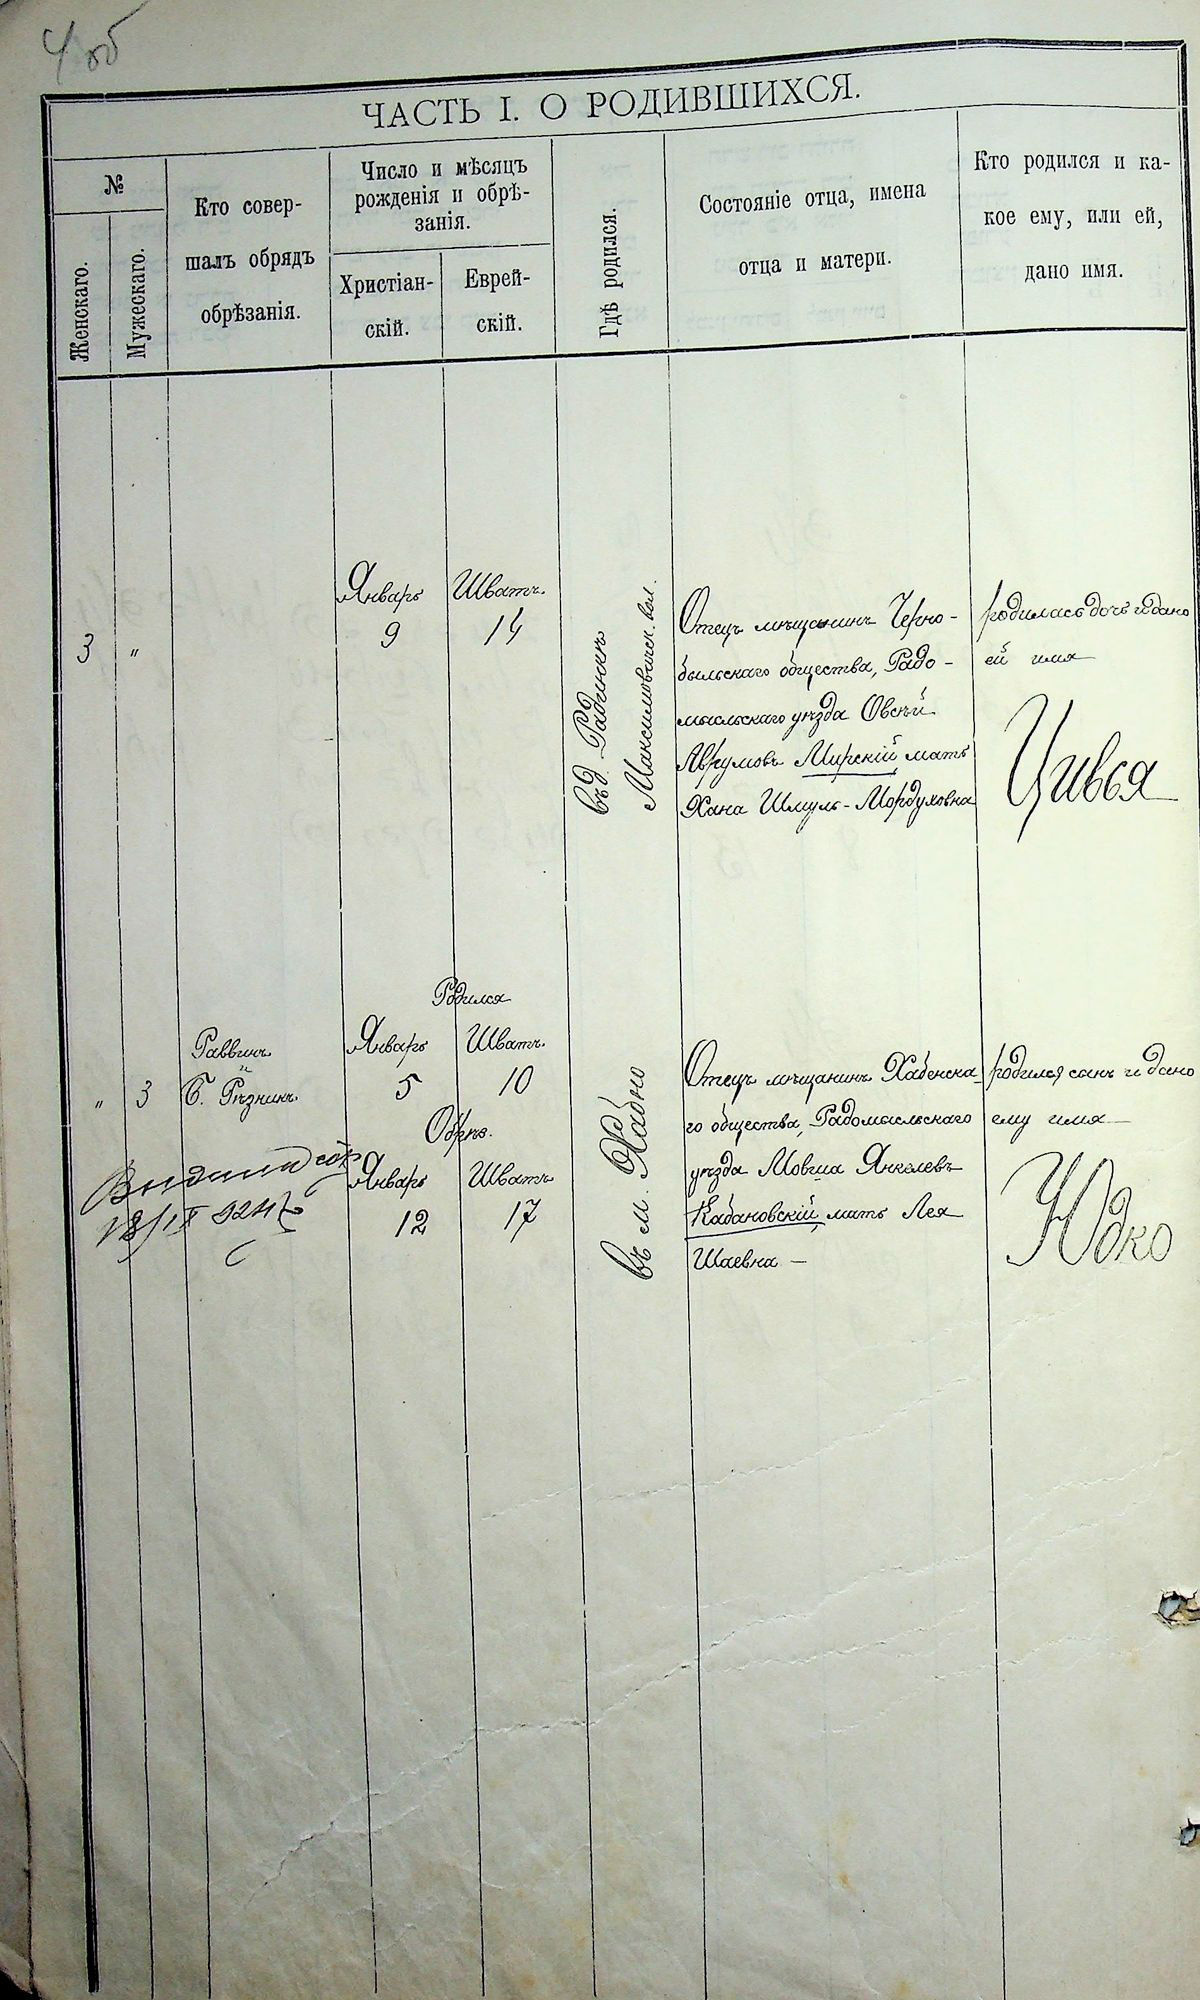 4 об
ЧАСТЬ I. О РОДИВШИХСЯ.
№
Женскаго.
Мужескаго.
Кто совер-
шалъ обрядъ
обрѣзанія.
Число и мѣсяцъ
рожденія и обрѣ-
занія.
Христіан-
скій.
Еврей-
скій.
Гдѣ родился.
Состояніе отца, имена
отца и матери.
Кто родился и ка-
кое ему, или ей,
дано имя.
3 „
Январь Шватъ.
9 14
въ д.
Максимовичск. вол.
Отецъ мѣщанинъ Черно-
быльскаго общества, Радо-
мысльскаго уѣзда Овсѣй
Аврумовъ Мирскій мать
Хана Шмуль-Мордуховна
родилась дочь и дано
ей имя
Цивья
„ 3
Раввинъ
и
Б. Рѣзникъ.
Родился
Январь Шватъ.
5 10
Обрѣз.
Январь Шватъ
12 17
въ м. Хабно
Отецъ мѣщанинъ Хабенска-
го общества, Радомысльскаго
уѣзда Мовша Янкелевъ
Кабановскій, мать Лея
Шаевна —
родился сынъ и дано
ему имя —
Юдко
18/IX